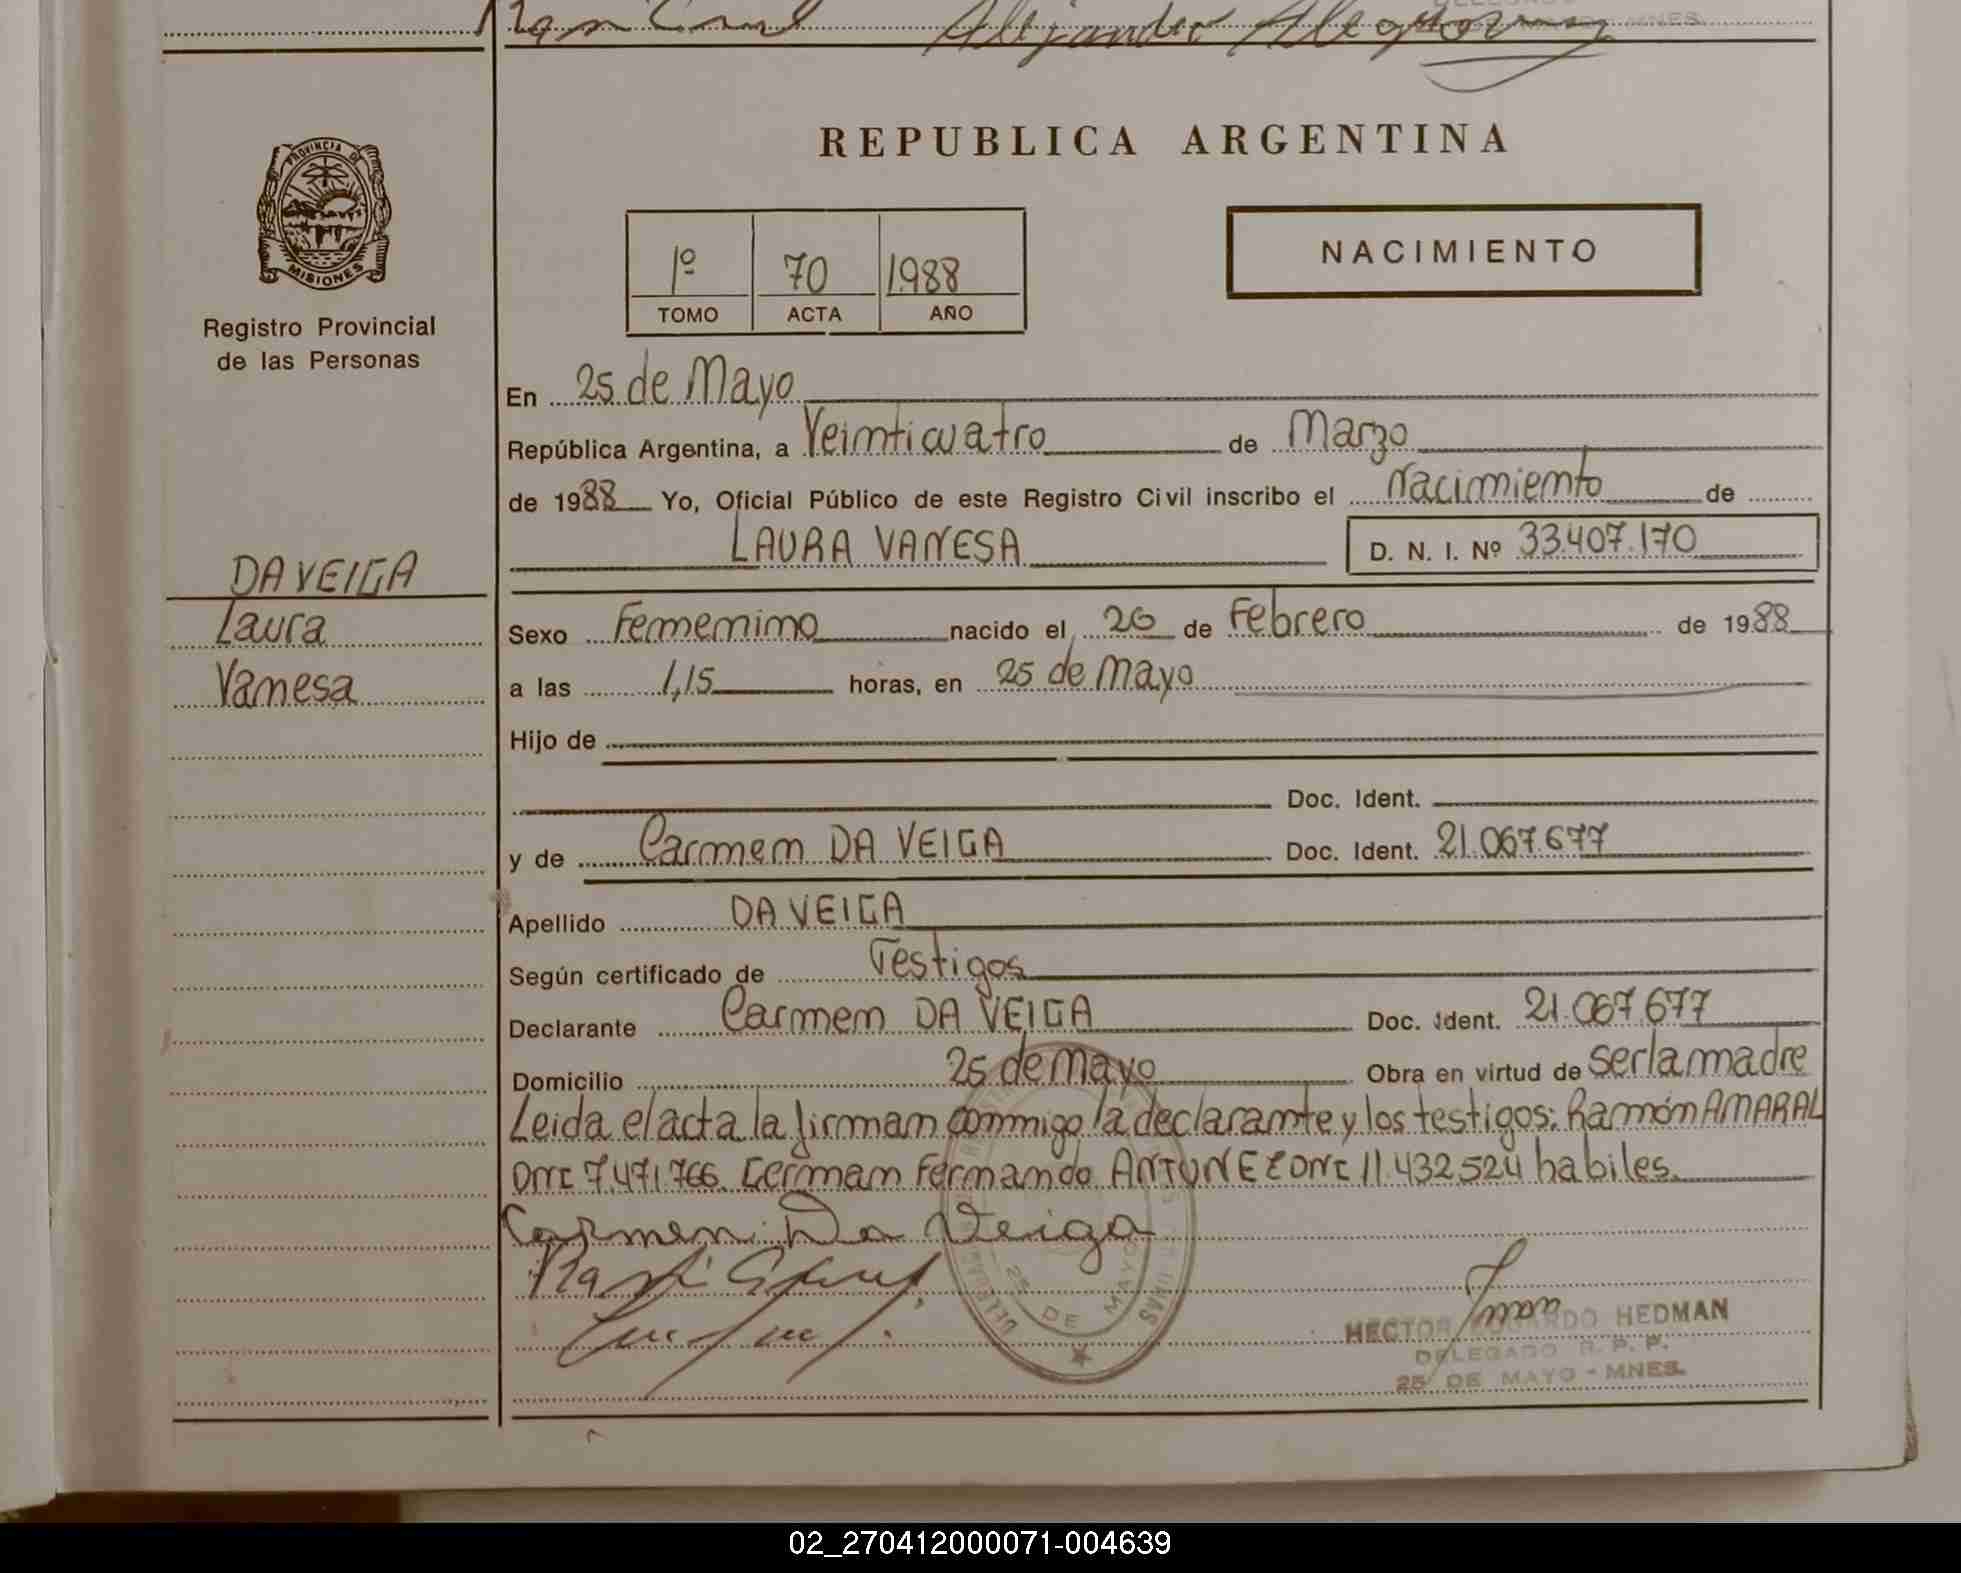 Alejandro
MNES.
PROVINCIA DE
MISIONES
Registro Provincial
de las Personas
DA VEIGA
Laura
Vanesa
REPUBLICA ARGENTINA
1º 70 1988
TOMO ACTA AÑO
NACIMIENTO
En 25 de Mayo
República Argentina, a Veinticuatro de Marzo
de 1988 Yo, Oficial Público de este Registro Civil inscribo el Nacimiento de
LAURA VANESA D. N. I. Nº 33.407.170
Sexo Femenino nacido el 26 de Febrero de 1988
a las 1,15 horas, en 25 de Mayo
Hijo de
Doc. Ident.
y de Carmen DA VEIGA Doc. Ident. 21.067.677
Apellido DA VEIGA
Según certificado de Testigos
Declarante Carmen DA VEIGA Doc. Ident. 21.067.677
Domicilio 25 de Mayo Obra en virtud de ser la madre
Leida el acta la firman conmigo la declarante y los testigos: Ramón AMARAL
DNI 7.471.766. German Fernando ANTUNEZ DNI 11.432.524 habiles.
Carmen Da Veiga
25 DE MAYO
HECTOR EDUARDO HEDMAN
DELEGADO R. P. P.
25 DE MAYO - MNES.
02_270412000071-004639